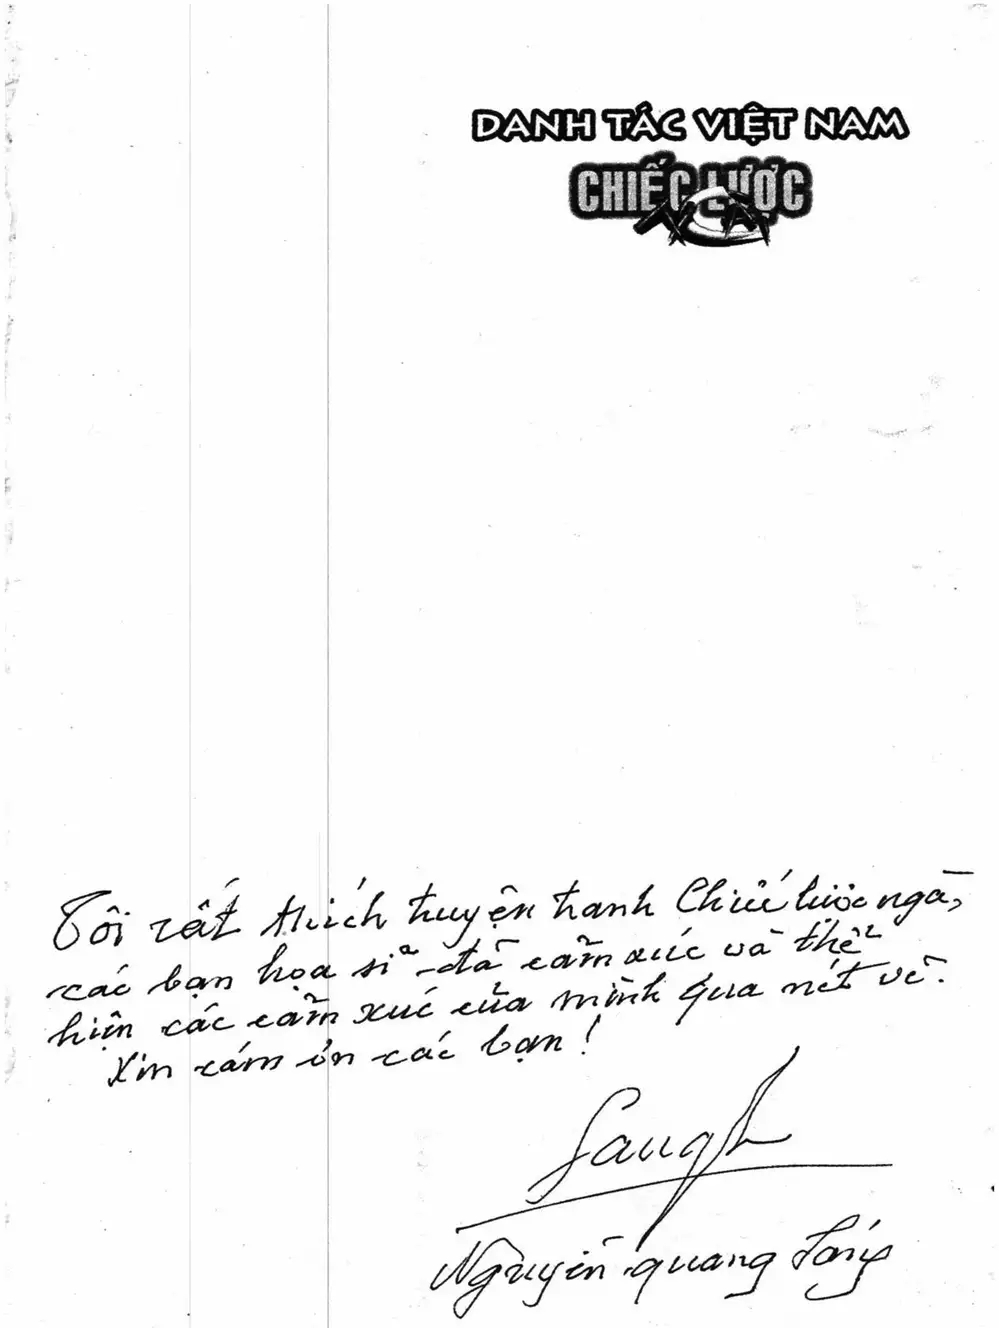 DANH TÁC VIỆT NAM
CHIẾC LƯỢC
NGÀ
Tôi rất thích truyện tranh Chiếc lược ngà,
các bạn họa sĩ đã cảm xúc và thể
hiện các cảm xúc của mình qua nét vẽ.
Xin cám ơn các bạn!
Nguyễn quang Sáng